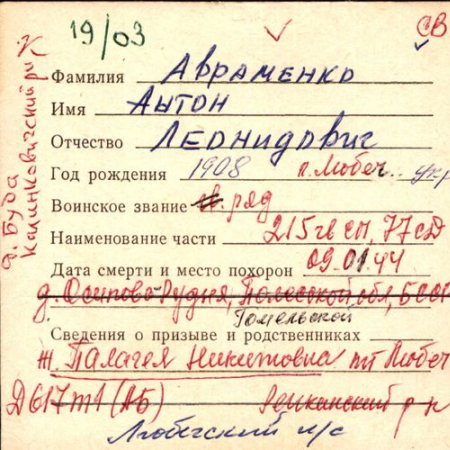 19/03
СВ
Фамилия Авраменко
Имя Антон
Отчество Леонидович
Год рождения 1908 п. Любеч. укр
Воинское звание гв. ряд
Наименование части 215 гв сп, 77 сД
Дата смерти и место похорон 09.01.44
д. Осипова-Рудня, Полесской обл, БССР
Гомельской
Сведения о призыве и родственниках
ж. Палагея Никитовна пгт Любеч
Д 617 т1 (АБ) р-н
Любечский с/с
д. Буда
Калинковичский р-н